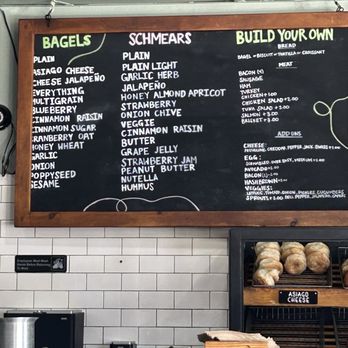 BAGELS
PLAIN
ASIAGO CHEESE
CHEESE JALAPEÑO
EVERYTHING
MULTIGRAIN
BLUEBERRY
CINNAMON RAISIN
CINNAMON SUGAR
CRANBERRY OAT
HONEY WHEAT
GARLIC
ONION
POPPYSEED
SESAME
SCHMEARS
PLAIN
PLAIN LIGHT
GARLIC HERB
JALAPEÑO
HONEY ALMOND APRICOT
STRAWBERRY
ONION CHIVE
VEGGIE
CINNAMON RAISIN
BUTTER
GRAPE JELLY
STRAWBERRY JAM
PEANUT BUTTER
NUTELLA
HUMMUS
BUILD YOUR OWN
BREAD
BAGEL OR BISCUIT OR TORTILLA OR CROISSANT
MEAT
BACON
SAUSAGE
HAM
TURKEY
CHICKEN
CHICKEN SALAD
TUNA SALAD
SALMON
BRISKET
ADD ONS
CHEESE:
EGG:
AVOCADO
BACON
HASHBROWN
VEGGIES:
LETTUCE, TOMATO, ONION, PICKLES, CUCUMBERS
SPROUTS
ASIAGO
CHEESE